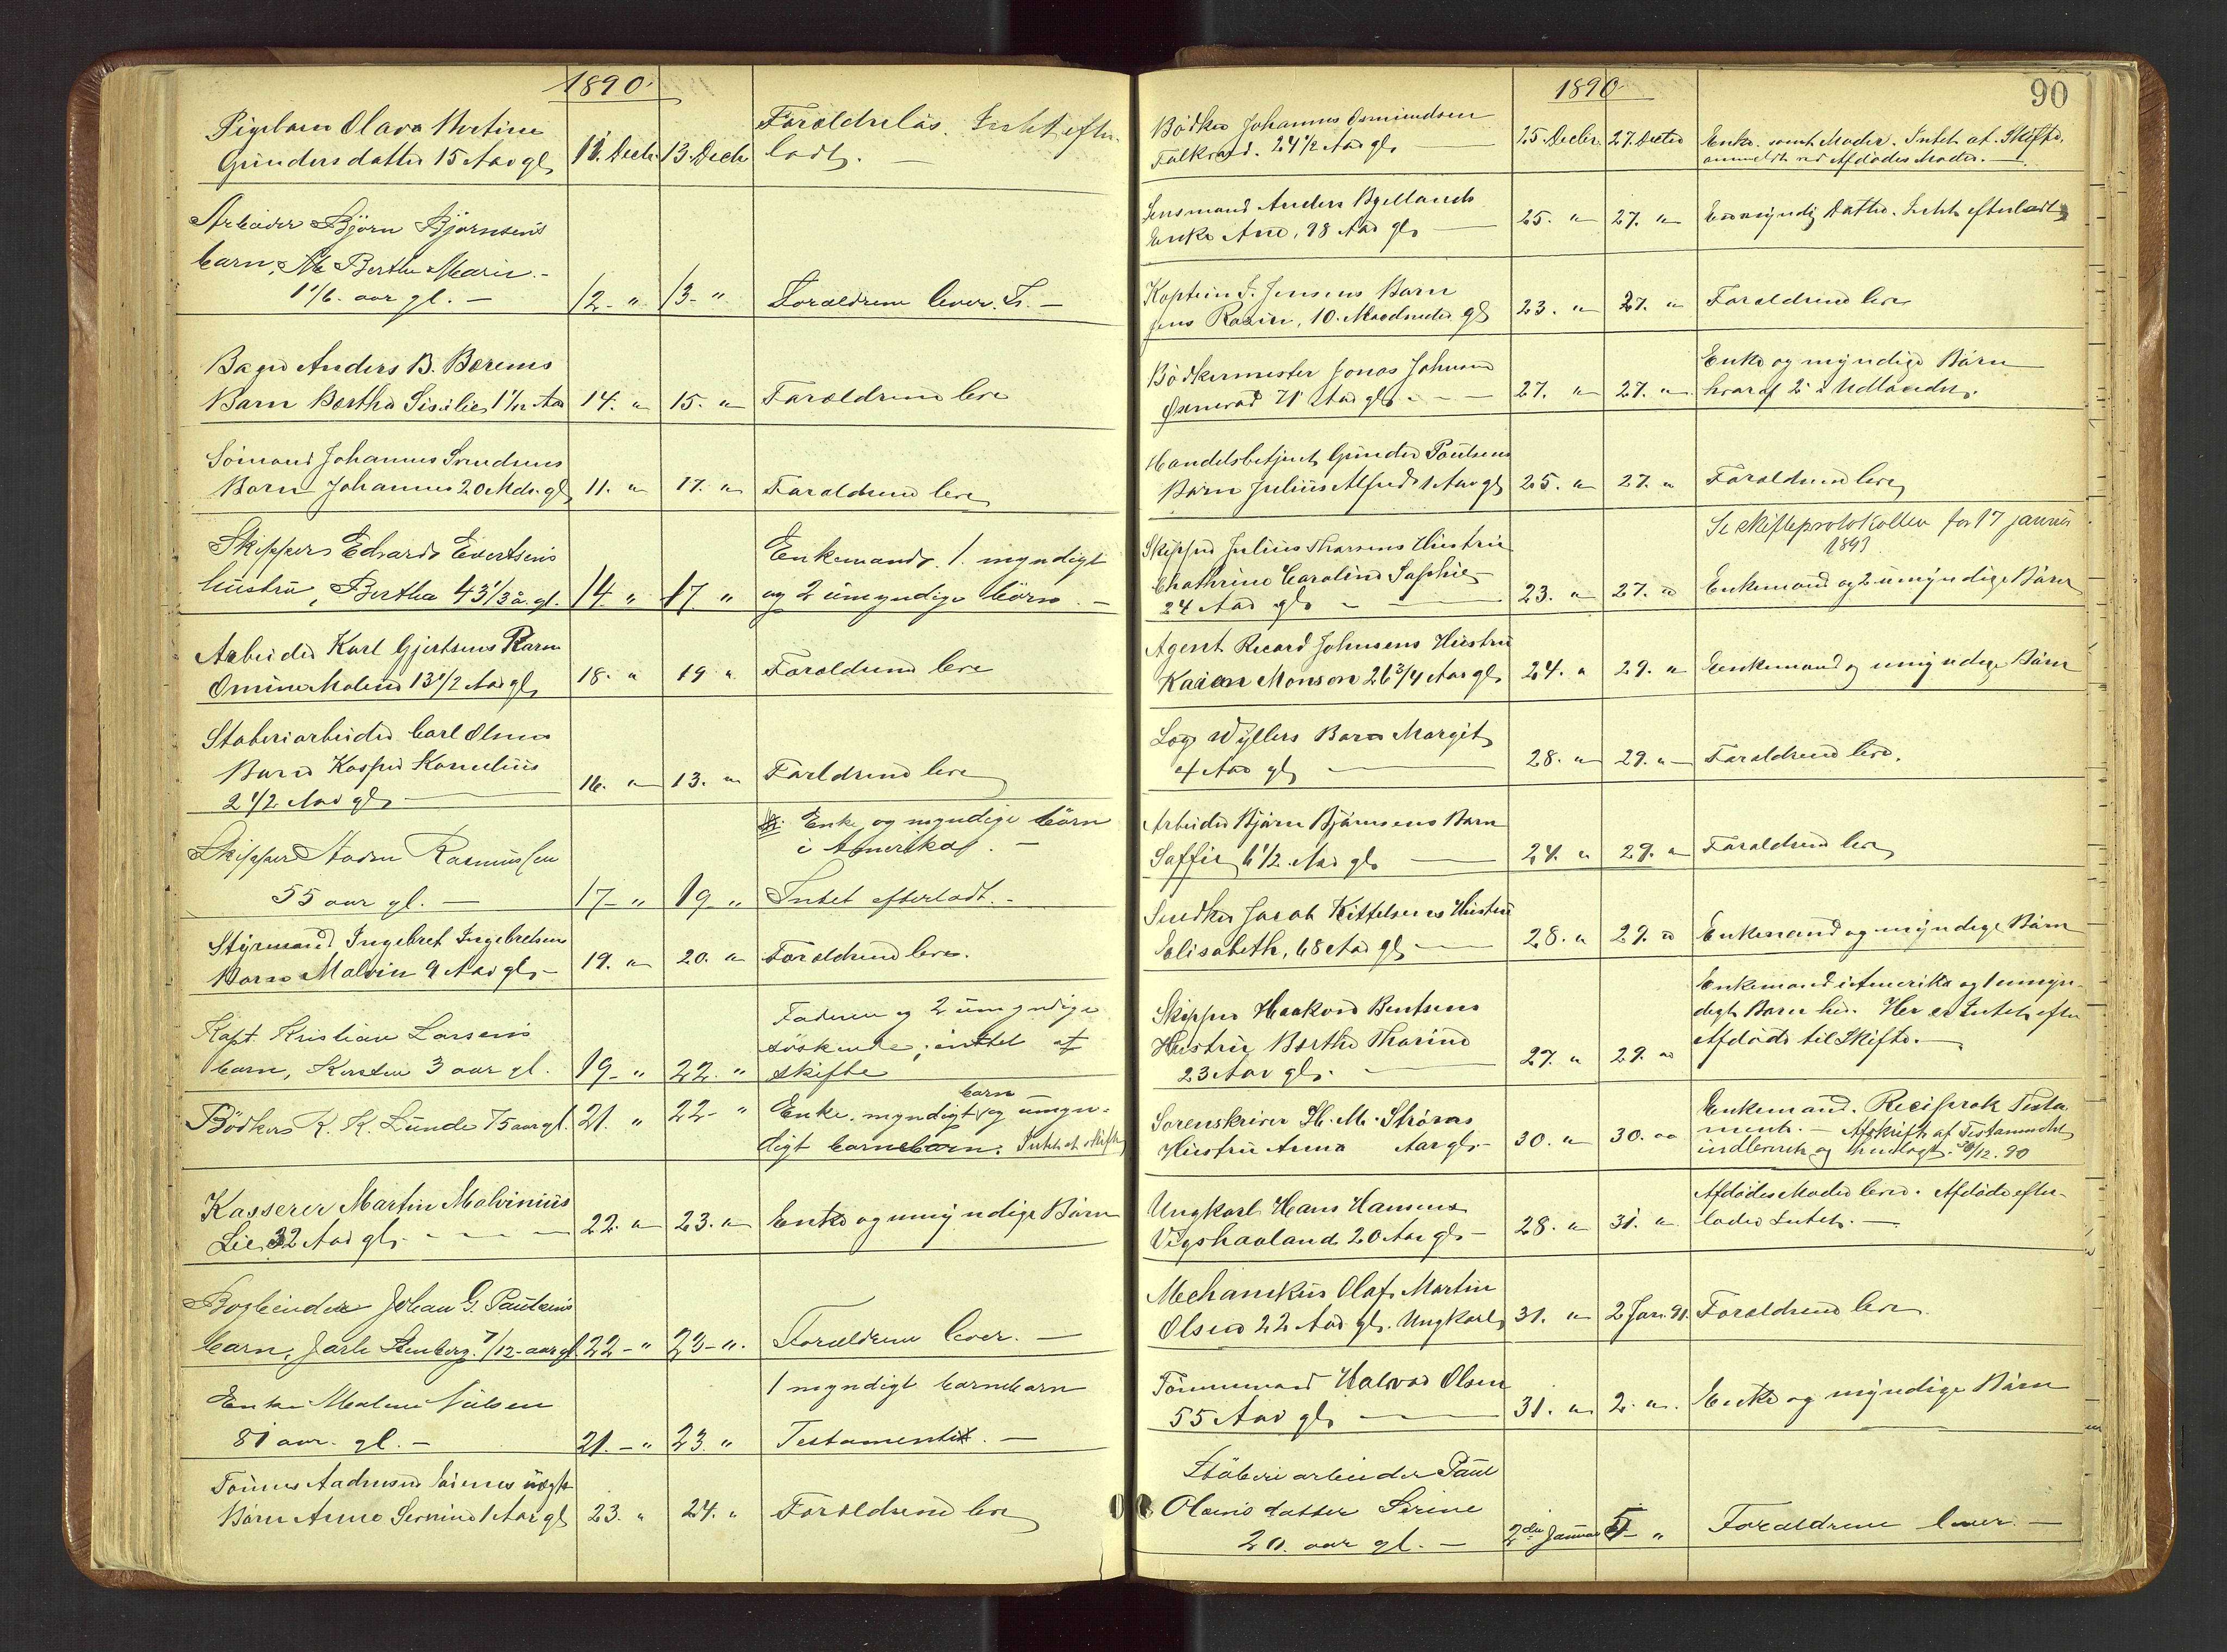 1890.
Pigebarn Olava Bertine
Gundersdatter 15 Aar gl
11. Decbr
13. Decbr
Forældreløs. Intet efter-
ladt. —
Arbeider Bjørn Bjørnsens
barn, Berthe Marie. -
1 1/6. aar gl. —
12 - "
13 - "
Forældrene lever. —
Bager Anders B. Børems
Barn Berthe Sisilie 1 1/12 Aar
14. "
15. "
Forældrene leve
Sømand Johannes Svendsens
Barn Johannes 20 Mdr. gl
11. "
17. "
Forældrene leve
Skipper Edvard Evertsens
hustru, Bertha 43 1/3 a. gl.
14 "
17 "
Enkemand. 1. myndigt
og 2 umyndige børn —
Arbeider Karl Gjertsens Barn
Omine Malene 13 1/2 Aar gl
18. "
19 "
Forældrene leve
Støberiarbeider Carl Olsens
Barn Kasper Kornelius
2 1/2 Aar gl. —
16. "
13. "
Forldrene leve
Enke og myndige børn
i Amerika. —
Skipper Aadne Rasmussen
55 aar gl. —
17 - "
19 - "
Intet efterladt. -
Styrmand Ingebret Ingebretsens
Barn Malvin 9 Aar gl. -
19. "
20. "
Forældrene leve.
Kapt. Kristian Larsens
barn, Kirsten 3 aar gl.
19 - "
22. "
Faderen og 2 umyndige
søskende, intet at
skifte
barn
Bødker K. K. Lunde 75 aar gl.
21. "
22 - "
Enke. myndigt og umyn-
digt barnebarn. Intet at skifte
Kasserer Martin Malvinius
Lie 32 Aar gl. - - -
22. "
23. "
Enke og umyndige Børn
Bogbinder Johan G. Paulsens
barn, Jarle Stenberg 7/12 - aar gl.
22 - "
23 - ".
Forældrene lever. —
Enke Malene Nilsen
81 aar. gl. —
21. - "
23. "
1 myndigt barnebarn
Testament. —
Børn Anne Serine 1 Aar gl
23. "
24. "
Forældrene leve
1890
90
Bødker Johannes Osmundsen
Falkeid. 24 1/2 Aar gl. —
25 Decbr.
27. Decbr
Enke samt Moder. Intet at Skifte,
anmeldt ved Afdødes Moder. —
Lensmand Anders Byellands
Enke Ane, 78 Aar gl. —
25. "
27. "
En myndig Datter. Intet efterladt
Kaptein J. Jensens Barn
Jens Racin, 10. Maaneder gl
23. "
27. "
Forældrene leve
Bødkermester Jonas Johnsen
71 Aar gl. - - —
27. "
27. "
Enke og myndige Børn
hvoraf 2 i Udlandet.
Handelsbetjent Gunder Poulsens
Barn Julius Alfred 1 Aar gl
25. "
27. "
Forældrene leve
Se skifteprotokollen for 17 januar
1893
Skipper Julius Tharsens Hustru
Chathrine Caroline Sophie
24 Aar gl. - —
23. "
27. "
Enkemand og 2 umyndige Børn
Agent Ricard Johnsens Hustru
Karen Monsen 26 3/4 Aar gl
24. "
29. "
Enkemand og umyndige Børn
Log Wyllers Barn Margit
4 Aar gl. —
28. "
29. "
Forældrene leve.
Arbeider Bjørn Bjørnsens Barn
Saffie 6 1/2 Aar gl. —
24. "
29. "
Forældrene leve
Snedker Jacob Kittelsens Hustru
Elisabeth, 68 Aar gl. —
28. "
29. "
Enkemand og myndige Børn
Skipper Haakon Bentsens
Hustru Berthe Tharine
23 Aar gl. —
27. "
29. "
Enkemand i Amerika og 1 umyn-
digt Barn her. Her er Intet efter
Afdøde til Skifte. —
Sorenskriver H. M. Strøms
Hustru Anna Aar gl. -
30. "
30. "
Enkemand. Reciprok Testa-
ment. — Afskrift af Testamentet
indleveret og henlagt. 30/12. 90
Ungkarl Hans Hansens
Vigshaaland 20 Aar gl. —
28. "
31. "
Afdødes Moder lever. Afdøde efter-
lader Intet. —
Mechanikus Olaf Martin
Olsen 22 Aar gl. Ungkarl
31. "
2 Jan. 91.
Forældrene leve
Tømmermand Halvor Olsen
55 Aar gl. —
31. "
2. "
Enke og myndige Børn
Støberiarbeider Paul
Olsens datter Serine
20. aar gl. —
2den Januar
5 - "
Forældrene lever. —